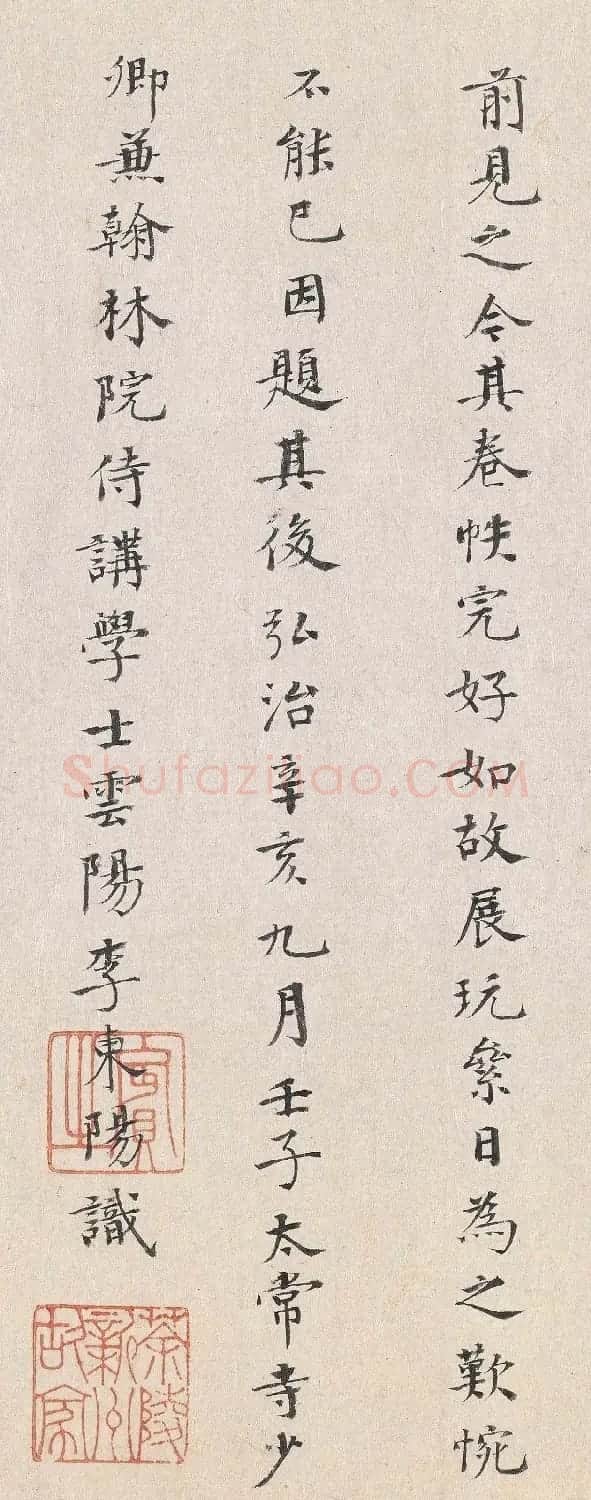 前見之今其卷帙完好如故展玩絫日為之歎惋
不能已因題其後弘治辛亥九月壬子太常寺少
卿兼翰林院侍講學士雲陽李東陽識
賓之
茶陵
Shufaziliao.com